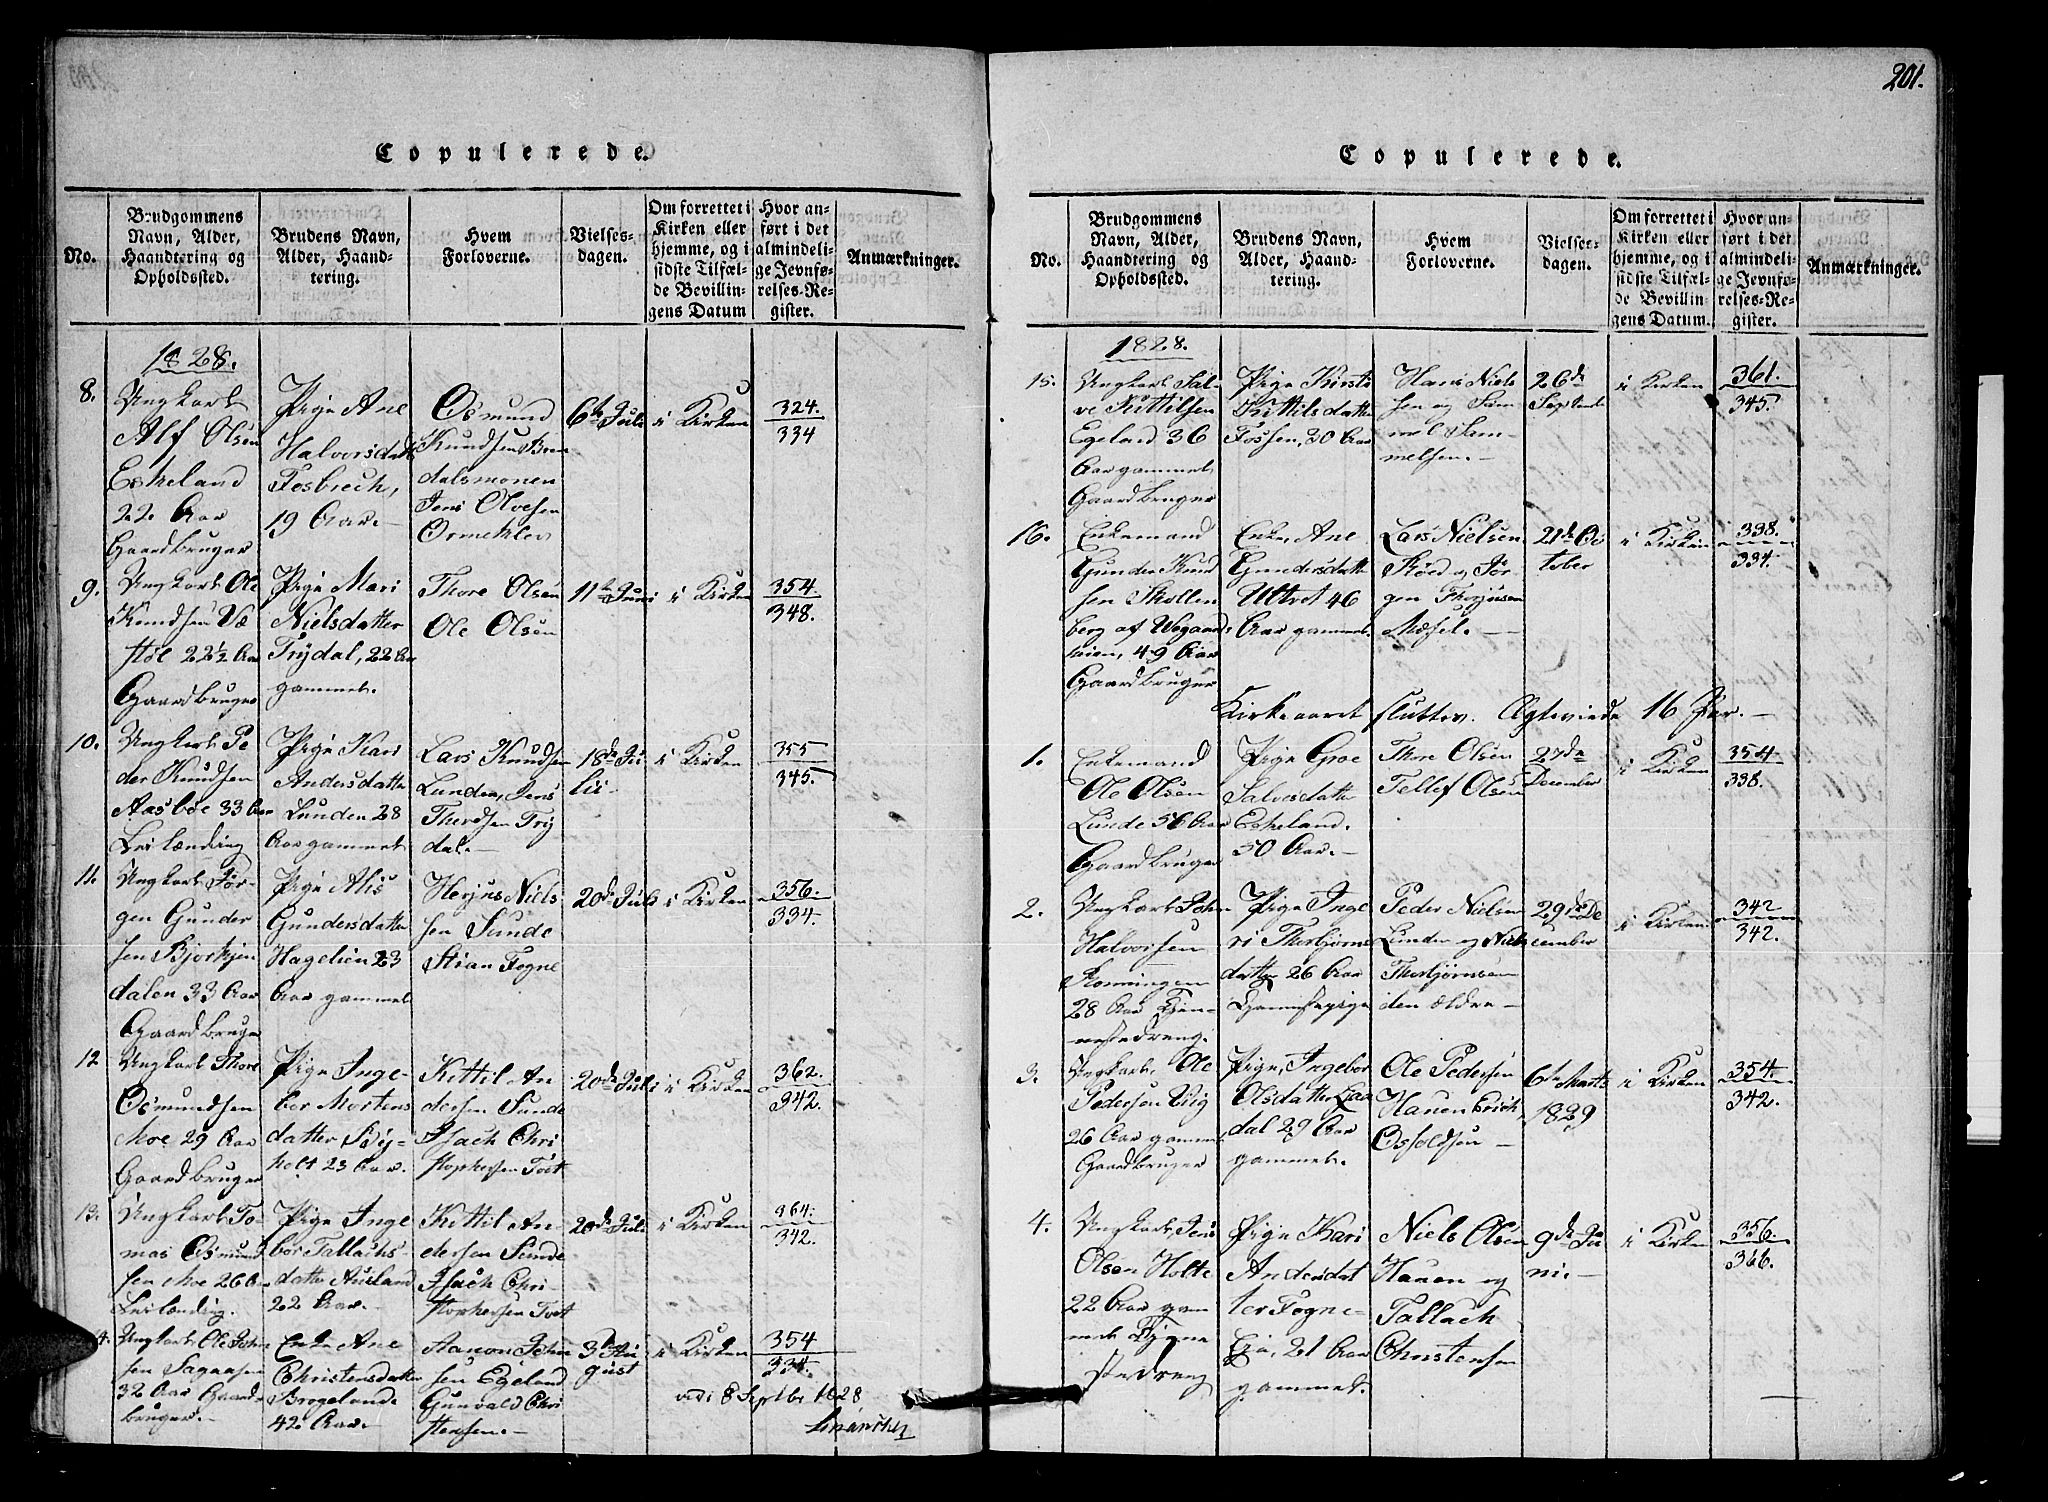 201.
Copulerede.
No.
Brudgommens Navn, Alder, Haandtering og Opholdssted.
Brudens Navn, Alder, Haandtering.
Hvem Forloverne.
Vielsesdagen.
Om forrettet i Kirken eller hjemme, og i sidste Tilfælde Bevillingens Datum
Hvor anført i det almindelige Jevnførelses-Register.
Anmærkninger.
1828.
8.
Ungkarl
Alf Olsen
Eskeland
22 Aar
Gaardbruger
Pige Ane
Halvorsdatt
Fosbrech,
19 Aar.
Osmund
Knudsen
dalsmonen
Jens Olvesen
6te Juli
i Kirken
324.
334
9.
Ungkarl Ole
Knudsen Væ
støl 22½ Aar
Gaardbruger
Pige Mari
Nielsdatter
Trydal, 22 Aar
gammel.
Thore Olsen
Ole Olsen
11te Juni
i Kirken
354.
348.
10.
Ungkarl Pe
der Knudsen
Aasbøe 33 Aar
Leilænding
Pige Kari
Andersdatter
Lunden 28
Aar gammel
Lars Knudsen
Lunden, Jens
Thordsen Try
dal.
18de Ju
lii
i Kirken
355
345.
11.
Ungkarl Jør-
gen Gunder
sen Bjorkjen
dalen 33 Aar
Gaardbruger
Pige Alis
Gundersdatter
Hagelien 23
Aar gammel
Herjus Niels
sen Sunde
Stian Fogne
20de Juli
i Kirken
356.
334.
12
Ungkarl Thore
Osmundsen
Moe 29 Aar
Gaardbruger
Pige Inge-
bor Mortens
datter Bøy-
holt 23 Aar.
Kittil An
dersen Sunde
Isach Chri
stophersen Tvet
20de Juli
i Kirken
362.
342.
13.
Ungkarl To-
mas Osmund
sen Moe 26 Aar
Leilænding.
Pige Inge
bor Tallachs-
datter Ausland
22 Aar.
Kittil An-
dersen Sunde
Isach Chri-
stophersen Tvet
20de Juli
i Kirken
364.
342.
14.
Ungkarl Ole John
sen
32 Aar Gaard-
bruger.
Enke Ane
Christensdatter
Brogelande
42 Aar.
Aanon John
sen Egeland
Gunvald Chri
stensen.
3de Au
gust
i Kirken
354
334.
vidi 8 Septbr 1828
Copulerede.
No.
Brudgommens Navn, Alder, Haandtering og Opholdssted.
Brudens Navn, Alder, Haandtering.
Hvem Forloverne.
Vielsesdagen.
Om forrettet i Kirken eller hjemme, og i sidste Tilfælde Bevillingens Datum.
Hvor anført i det almindelige Jevnførelses-Register.
Anmærkninger.
1828.
15.
Ungkarl Sal-
ve Kittilsen
Egeland 36
Aar gammel
Gaardbruger
Pige Kirsti
Kittilsdatter
Fossen, 30 Aar
Hans Niel
sen og Sam
mel Sam-
melsen.
26de
Septemb
i Kirken
361.
345.
16.
Enkemand
Gunder Knud
sen Skollen
berg af Wegaards
heien, 49 Aar
Gaardbruger
Enke Ane
Gundersdatter
Ultvet 46
Aar gammel.
Lars Nielsen
og Jør
gen Thorjusen
Mæsel.
21de Oc
tober
i Kirken
338.
334.
Kirkeaaret slutter. Ægteviede 16 Par.
1.
Enkemand
Ole Olsen
Lunde 56 Aar
Gaardbruger
Pige Groe
Salvesdatter
Eskeland.
50 Aar.
Thore Olsen
Tellef Olsen
27de
December
i Kirken
354
338.
2.
Ungkarl John
Halvorsen
28 Aar Tjen-
nestedreng.
Pige Inge
ri Thorbjørns
datter 26 Aar
Tjennestepige
Peder Nielsen
Lunden og Niels
Thorbjørnsen
den ældre
29de De
cember
i Kirken
342
342.
3.
Ungkarl Ole
Pedersen Vig
26 Aar gamm
Gaardbruger
Pige, Ingebor
Olsdatter Laa
dal 29 Aar
gammel.
Ole Pedersen
Hauen Erich
Osfoldsen
6te Marts
1829
i Kirken
354
342.
4.
Ungkarl, Jens
Olsen Holte
22 Aar gam
mel Tjene
stedreng
Pige Kari
Andersdat
ter Fogne-
21 Aar
gammel.
Niels Olsen
Hauen og
Tallach
Christensen
9de Ju
ni.
i Kirken
356.
366.